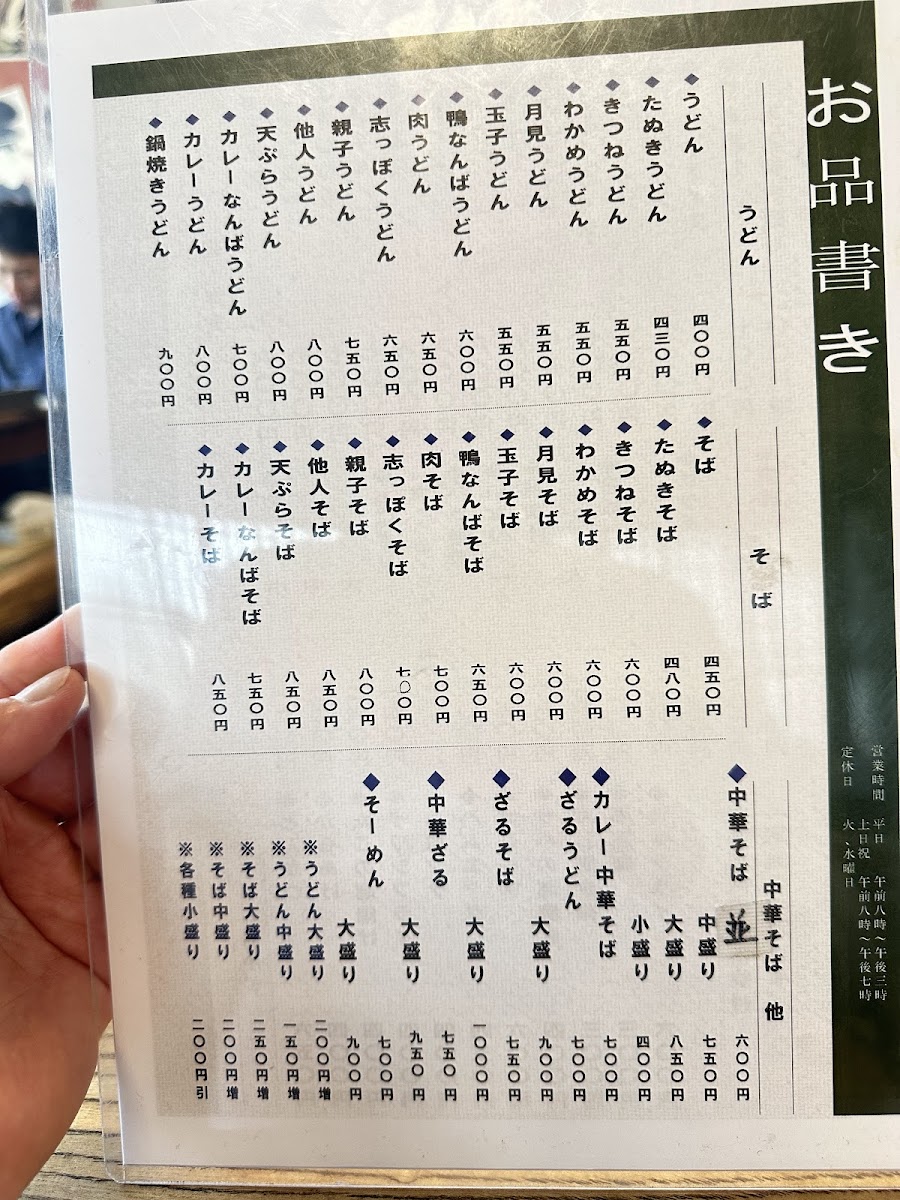 お品書き
営業時間 平日 午前八時～午後三時
土日祝 午前八時～午後七時
定休日 火、水曜日
うどん
◆うどん 四〇〇円
◆たぬきうどん 四三〇円
◆きつねうどん 五五〇円
◆わかめうどん 五五〇円
◆月見うどん 五五〇円
◆玉子うどん 五五〇円
◆鴨なんばうどん 六〇〇円
◆肉うどん 六五〇円
◆志っぽくうどん 六五〇円
◆親子うどん 七五〇円
◆他人うどん 八〇〇円
◆天ぷらうどん 八〇〇円
◆カレーなんばうどん 七〇〇円
◆カレーうどん 八〇〇円
◆鍋焼きうどん 九〇〇円
そば
◆そば 四五〇円
◆たぬきそば 四八〇円
◆きつねそば 六〇〇円
◆わかめそば 六〇〇円
◆月見そば 六〇〇円
◆玉子そば 六〇〇円
◆鴨なんばそば 六五〇円
◆肉そば 七〇〇円
◆志っぽくそば 七〇〇円
◆親子そば 八〇〇円
◆他人そば 八五〇円
◆天ぷらそば 八五〇円
◆カレーなんばそば 七五〇円
◆カレーそば 八五〇円
中華そば 他
◆中華そば 並 六〇〇円
中盛り 七五〇円
大盛り 八五〇円
小盛り 四〇〇円
◆カレー中華そば 七〇〇円
◆ざるうどん 七〇〇円
大盛り 九〇〇円
◆ざるそば 七五〇円
大盛り 一〇〇〇円
◆中華ざる 七五〇円
大盛り 九五〇円
◆そーめん 七〇〇円
大盛り 九〇〇円
※うどん大盛り 二〇〇円増
※うどん中盛り 一五〇円増
※そば大盛り 二五〇円増
※そば中盛り 二〇〇円増
※各種小盛り 二〇〇円引